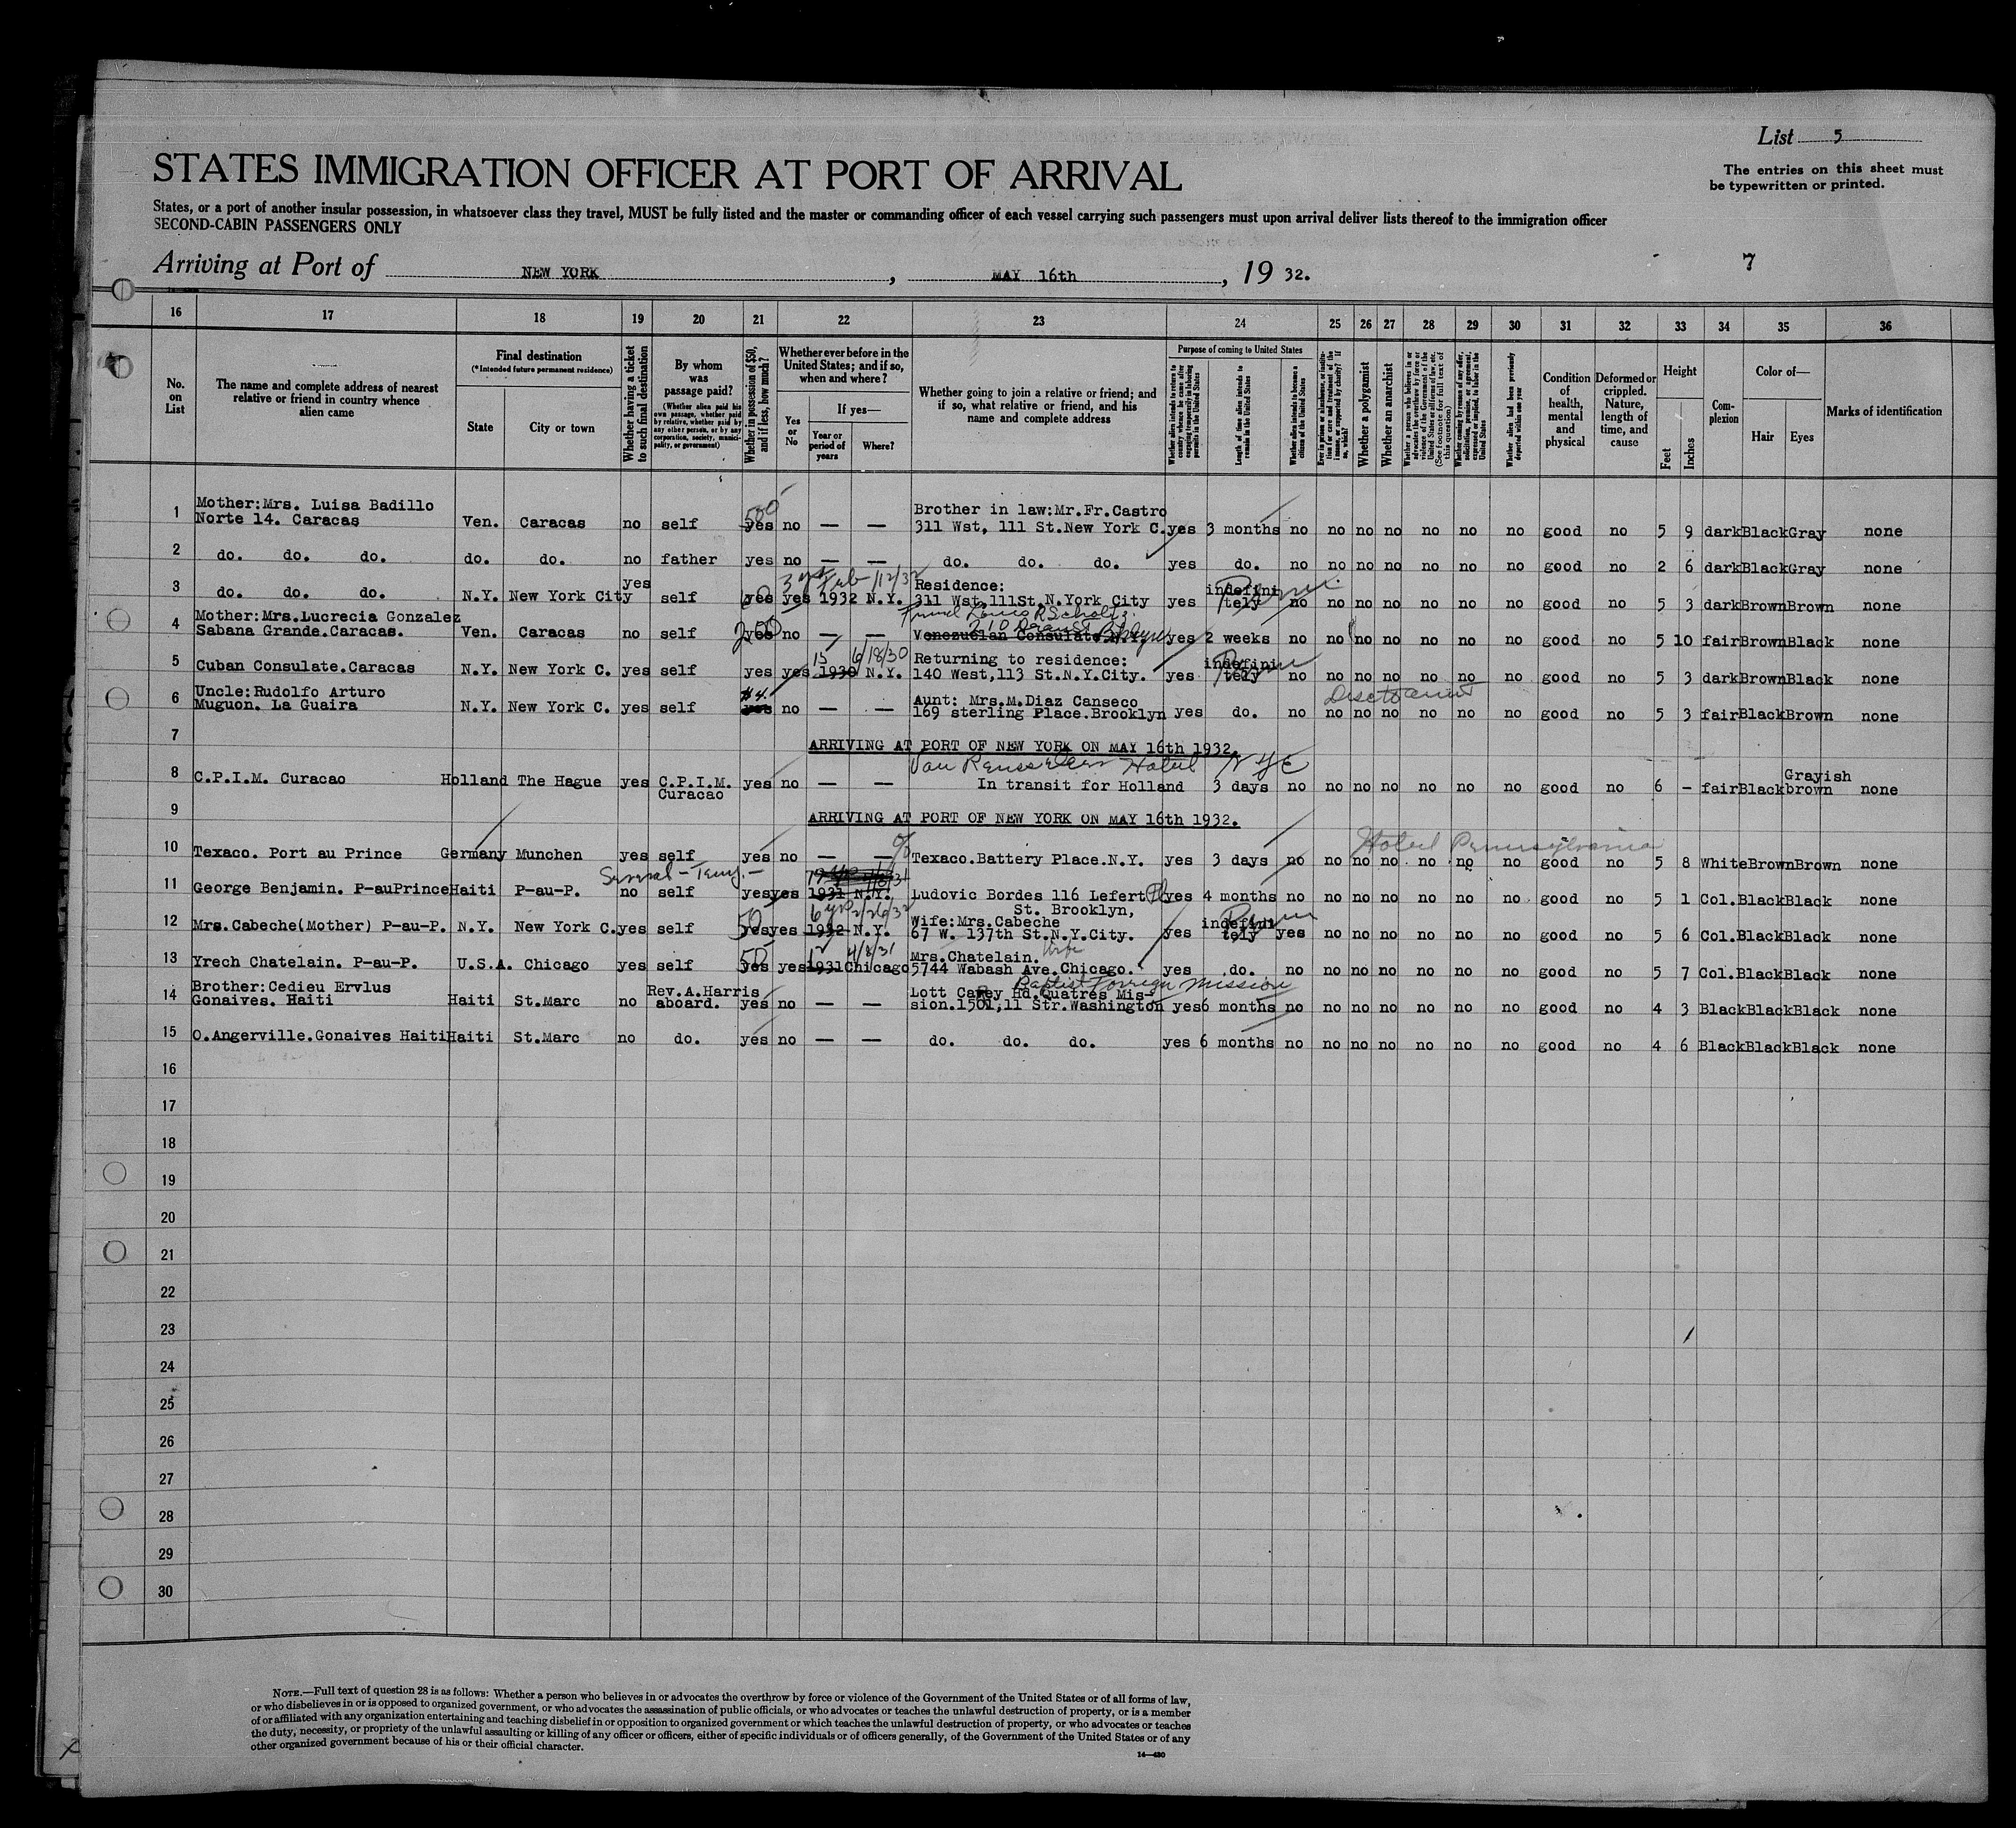 List 5
The entries on this sheet must
be typewritten or printed.
STATES IMMIGRATION OFFICER AT PORT OF ARRIVAL
States, or a port of another insular possession, in whatsoever class they travel, MUST be fully listed and the master or commanding officer of each vessel carrying such passengers must upon arrival deliver lists thereof to the immigration officer
SECOND-CABIN PASSENGERS ONLY
Arriving at Port of NEW YORK, MAY 16th, 19 32.
7
16 17 18 19 20 21 22 23 24 25 26 27 28 29 30 31 32 33 34 35 36
No. on List
The name and complete address of nearest relative or friend in country whence alien came
Final destination
(*Intended future permanent residence)
State
City or town
Whether having a ticket to such final destination
By whom was passage paid?
(Whether alien paid his own passage, whether paid by relative, whether paid by any other person, or by any corporation, society, municipality, or government)
Whether in possession of $50, and if less, how much?
Whether ever before in the United States; and if so, when and where?
Yes or No
If yes—
Year or period of years
Where?
Whether going to join a relative or friend; and if so, what relative or friend, and his name and complete address
Purpose of coming to United States
Whether alien intends to return to country whence he came after engaging temporarily in laboring pursuits in the United States
Length of time alien intends to remain in the United States
Whether alien intends to become a citizen of the United States
Ever in prison or almshouse, or institution for care and treatment of the insane, or supported by charity? If so, which?
Whether a polygamist
Whether an anarchist
Whether a person who believes in or advocates the overthrow by force or violence of the Government of the United States or all forms of law, etc. (See footnote for full text of this question)
Whether coming by reason of any offer, solicitation, promise, or agreement, expressed or implied, to labor in the United States
Whether alien had been previously deported within one year
Condition of health, mental and physical
Deformed or crippled. Nature, length of time, and cause
Height
Feet
Inches
Complexion
Color of—
Hair
Eyes
Marks of identification
1 Mother:Mrs. Luisa Badillo
Norte 14. Caracas Ven. Caracas no self yes 500 no — — Brother in law:Mr.Fr.Castro
311 Wst, 111 St.New York C. yes 3 months no no no no no no no good no 5 9 dark Black Gray none
2 do. do. do. do. do. no father yes no — — do. do. do. yes do. no no no no no no no good no 2 6 dark Black Gray none
3 do. do. do. N.Y. New York City yes self yes yes 3 yrs Feb 1932 /12/32 N.Y. Residence:
311 Wst.111St.N.York City yes indefinitely Perm. no no no no no no no good no 5 3 dark Brown Brown none
4 Mother:Mrs.Lucrecia Gonzalez
Sabana Grande.Caracas. Ven. Caracas no self yes 200 no — — Friend Louis R
210 Dean St Bklyn
Venezuelan Consulate.N.Y. yes 2 weeks no no no no no no no good no 5 10 fair Brown Black none
5 Cuban Consulate.Caracas N.Y. New York C. yes self yes yes 15 1930 6/18/30 N.Y. Returning to residence:
140 West,113 St.N.Y.City. yes indefinitely Perm no no no no no no no good no 5 3 dark Brown Black none
6 Uncle:Rudolfo Arturo
Muguon. La Guaira N.Y. New York C. yes self $4. yes no — — Aunt: Mrs.M.Diaz Canseco
169 sterling Place.Brooklyn yes do. no no no no no no no good no 5 3 fair Black Brown none
7 ARRIVING AT PORT OF NEW YORK ON MAY 16th 1932.
Van Rensselaer Hotel N Y C
8 C.P.I.M. Curacao Holland The Hague yes C.P.I.M.
Curacao yes no — — In transit for Holland 3 days no no no no no no no good no 6 - fair Black Grayish brown none
9 ARRIVING AT PORT OF NEW YORK ON MAY 16th 1932.
Hotel Pennsylvania
10 Texaco. Port au Prince Germany Munchen yes self yes no — — c/o Texaco.Battery Place.N.Y. yes 3 days no no no no no no no good no 5 8 White Brown Brown none
Several - Temp. -
11 George Benjamin. P-auPrince Haiti P-au-P. no self yes yes 1931 N.Y. Ludovic Bordes 116 Lefert Pl yes 4 months no no no no no no no good no 5 1 Col. Black Black none
St. Brooklyn,
12 Mrs.Cabeche(Mother) P-au-P. N.Y. New York C. yes self 50 yes yes 6 yrs 1932 2/26/32 N.Y. Wife:Mrs.Cabeche
67 W. 137th St.N.Y.City. yes indefinitely Perm yes no no no no no no good no 5 6 Col. Black Black none
13 Yrech Chatelain. P-au-P. U.S.A. Chicago yes self 50 yes yes 12 1931 4/8/31 Chicago Mrs.Chatelain. Wife
5744 Wabash Ave.Chicago. yes do. no no no no no no no good no 5 7 Col. Black Black none
Baptist Foreign Mission
14 Brother:Cedieu Ervlus
Gonaives. Haiti Haiti St.Marc no Rev.A.Harris
aboard. yes no — — Lott Carey Hd.Quatres Mis-
sion.1501,11 Str.Washington yes 6 months no no no no no no no good no 4 3 Black Black Black none
15 O.Angerville.Gonaives Haiti Haiti St.Marc no do. yes no — — do. do. do. yes 6 months no no no no no no no good no 4 6 Black Black Black none
16
17
18
19
20
21
22
23
24
25
26
27
28
29
30
NOTE.—Full text of question 28 is as follows: Whether a person who believes in or advocates the overthrow by force or violence of the Government of the United States or of all forms of law,
or who disbelieves in or is opposed to organized government, or who advocates the assassination of public officials, or who advocates or teaches the unlawful destruction of property, or is a member
of or affiliated with any organization entertaining and teaching disbelief in or opposition to organized government or which teaches the unlawful destruction of property, or who advocates or teaches
the duty, necessity, or propriety of the unlawful assaulting or killing of any officer or officers, either of specific individuals or of officers generally, of the Government of the United States or of any
other organized government because of his or their official character.
14—430